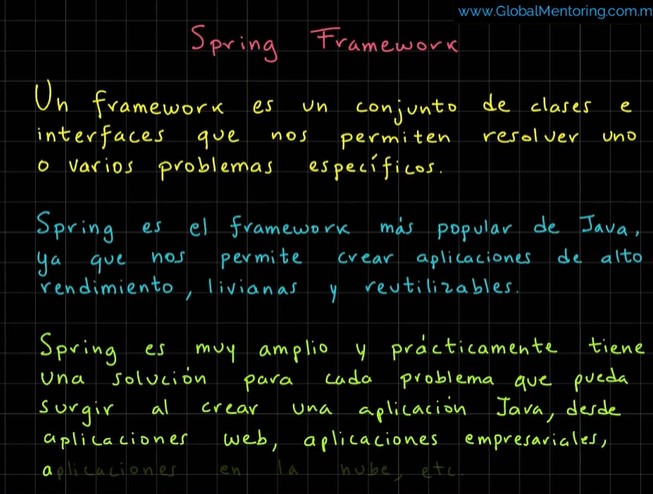 www.GlobalMentoring.com.m
Spring Framework
Un framework es un conjunto de clases e
interfaces que nos permiten resolver uno
o varios problemas específicos.
Spring es el framework más popular de Java,
ya que nos permite crear aplicaciones de alto
rendimiento, livianas y reutilizables.
Spring es muy amplio y prácticamente tiene
una solución para cada problema que pueda
surgir al crear una aplicación Java, desde
aplicaciones web, aplicaciones empresariales,
aplicaciones en la nube, etc.